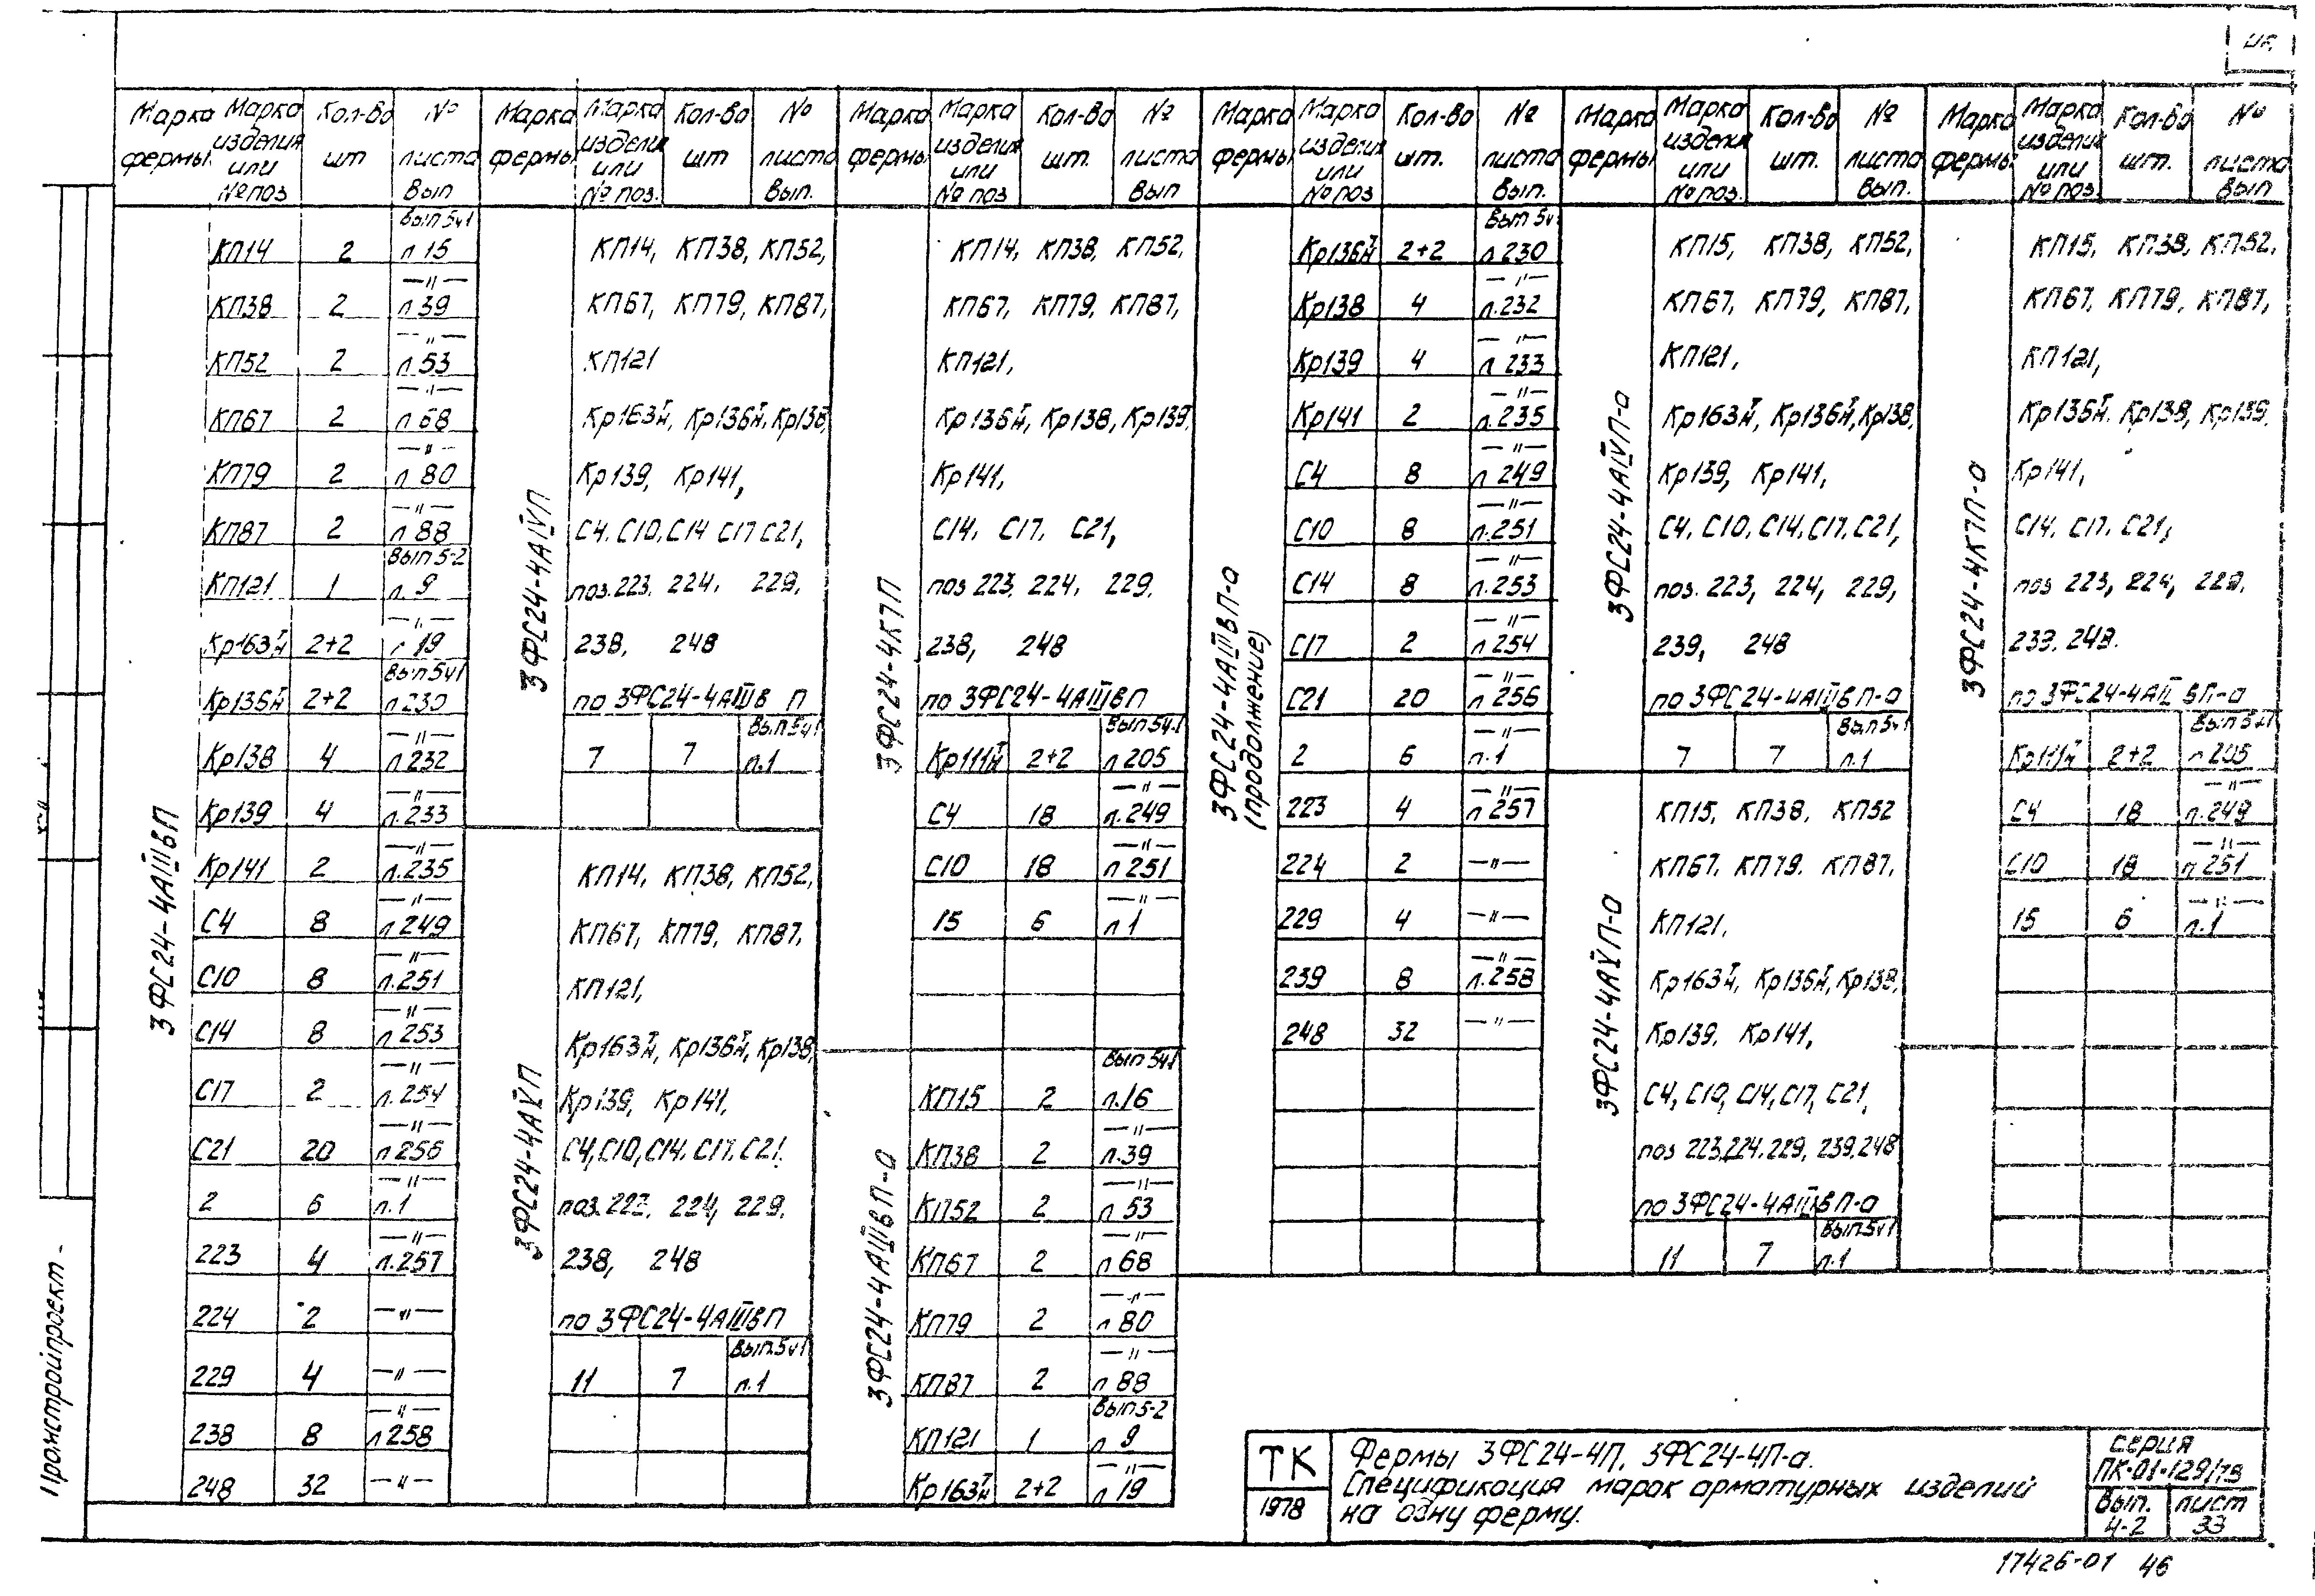 Марка фермы | Марка изделия или № поз | Кол-во шт | № листа Вып
3ФС24-4АIIIвП
КП14 | 2 | Вып 5ч1 л 15
КП38 | 2 | —"— л 39
КП52 | 2 | —"— л.53
КП67 | 2 | —"— л 68
КП79 | 2 | —"— л 80
КП87 | 2 | —"— л 88
КП121 | 1 | Вып 5-2 л. 9
Кр163т/н | 2+2 | —"— л 19
Кр136т/н | 2+2 | Вып 5ч1 л 230
Кр138 | 4 | —"— л 232
Кр139 | 4 | —"— л.233
Кр141 | 2 | —"— л.235
С4 | 8 | —"— л 249
С10 | 8 | —"— л.251
С14 | 8 | —"— л 253
С17 | 2 | —"— л.254
С21 | 20 | —"— л 256
2 | 6 | —"— л.1
223 | 4 | —"— л.257
224 | 2 | —"—
229 | 4 | —"—
238 | 8 | —"— л 258
248 | 32 | —"—
Марка фермы | Марка изделия или № поз. | Кол-во шт | № листа Вып.
3ФС24-4АIVП
КП14, КП38, КП52,
КП67, КП79, КП87,
КП121
Кр163т/н, Кр136т/н, Кр138,
Кр139, Кр141,
С4, С10, С14 С17 С21,
поз. 223, 224, 229,
238, 248
по 3ФС24-4АIIIв П
7 | 7 | Вып 5ч1 л.1
3ФС24-4АVП
КП14, КП38, КП52,
КП67, КП79, КП87,
КП121,
Кр163т/н, Кр136т/н, Кр138,
Кр139, Кр141,
С4, С10, С14, С17, С21,
поз. 223, 224, 229,
238, 248
по 3ФС24-4АIIIвП
11 | 7 | Вып.5ч1 л.1
Марка фермы | Марка изделия или № поз | Кол-во шт. | № листа Вып
3ФС24-4К7П
КП14, КП38, КП52,
КП67, КП79, КП87,
КП121,
Кр136т/н, Кр138, Кр139,
Кр141,
С14, С17, С21,
поз 223, 224, 229,
238, 248
по 3ФС24-4АIIIвП
Кр111т/н | 2+2 | Вып 5ч.1 л 205
С4 | 18 | —"— л.249
С10 | 18 | —"— л 251
15 | 6 | —"— л 1
3ФС24-4АIIIвП-а
КП15 | 2 | Вып 5ч1 л.16
КП38 | 2 | —"— л.39
КП52 | 2 | —"— л 53
КП67 | 2 | —"— л 68
КП79 | 2 | —"— л 80
КП87 | 2 | —"— л 88
КП121 | 1 | Вып 5-2 л 9
Кр163т/н | 2+2 | —"— л 19
Марка фермы | Марка изделия или № поз | Кол-во шт. | № листа Вып.
3ФС24-4АIIIвП-а (продолжение)
Кр136т/н | 2+2 | Вып 5ч л 230
Кр138 | 4 | —"— л.232
Кр139 | 4 | —"— л 233
Кр141 | 2 | —"— л.235
С4 | 8 | —"— л 249
С10 | 8 | —"— л.251
С14 | 8 | —"— л.253
С17 | 2 | —"— л 254
С21 | 20 | —"— л 256
2 | 6 | —"— л.1
223 | 4 | —"— л 257
224 | 2 | —"—
229 | 4 | —"—
239 | 8 | —"— л.258
248 | 32 | —"—
Марка фермы | Марка изделия или № поз. | Кол-во шт. | № листа Вып.
3ФС24-4АIVП-а
КП15, КП38, КП52,
КП67, КП79, КП87,
КП121,
Кр163т/н, Кр136т/н, Кр138,
Кр139, Кр141,
С4, С10, С14, С17, С21,
поз. 223, 224, 229,
239, 248
по 3ФС24-4АIIIвП-а
7 | 7 | Вып 5ч1 л.1
3ФС24-4АVП-а
КП15, КП38, КП52
КП67, КП79, КП87,
КП121,
Кр163т/н, Кр136т/н, Кр138,
Кр139, Кр141,
С4, С10, С14, С17, С21,
поз 223, 224, 229, 239, 248
по 3ФС24-4АIIIвП-а
11 | 7 | Вып.5ч1 л.1
Марка фермы | Марка изделия или № поз. | Кол-во шт. | № листа Вып
3ФС24-4К7П-а
КП15, КП38, КП52,
КП67, КП79, КП87,
КП121,
Кр136т/н, Кр138, Кр139,
Кр141,
С14, С17, С21,
поз 223, 224, 229,
239, 248.
по 3ФС24-4АIIIвП-а
Кр111т/н | 2+2 | Вып 5ч1 л 205
С4 | 18 | —"— л.249
С10 | 18 | —"— л 251
15 | 6 | —"— л.1
Промстройпроект
ТК
1978
Фермы 3ФС24-4П, 3ФС24-4П-а.
Спецификация марок арматурных изделий
на одну ферму.
серия
ПК-01-129/78
Вып. 4-2 | лист 33
17426-01 46